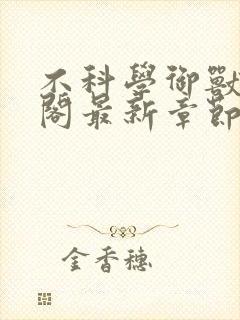 不科學御獸
閣最新章節
金香穗